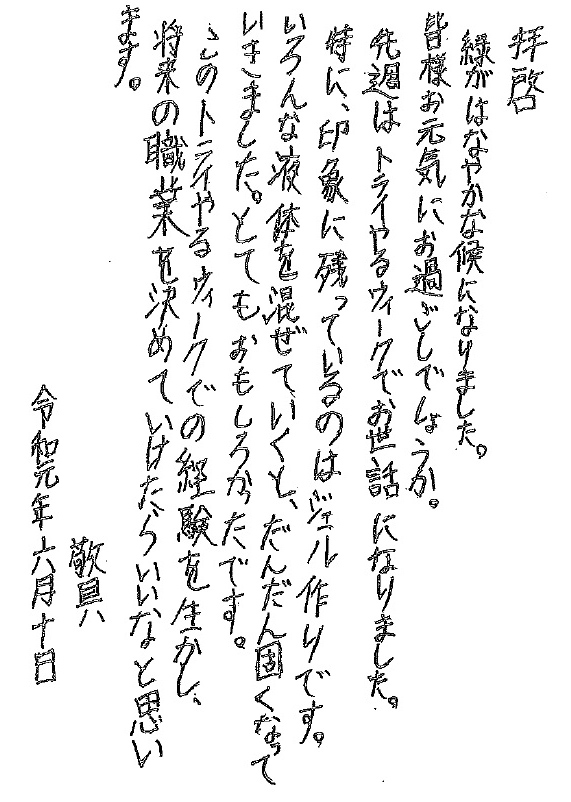 拝啓
緑がはなやかな候になりました。
皆様お元気にお過ごしでしょうか。
先週はトライやるウィークでお世話になりました。
特に、印象に残っているのはジェル作りです。
いろんな液体を混ぜていくと、だんだん固くなって
いきました。とてもおもしろかったです。
このトライやるウィークでの経験を生かし、
将来の職業を決めていけたらいいなと思い
ます。
敬具
令和元年六月十日